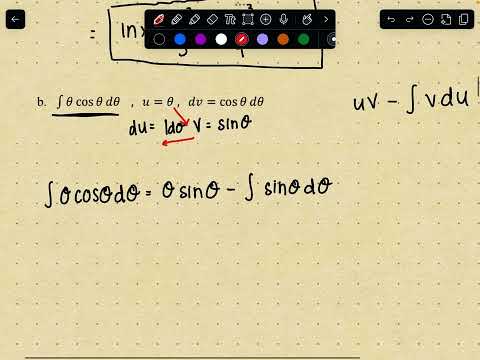 = ln x
b. ∫ θ cos θ dθ , u = θ , dv = cos θ dθ
du = 1dθ v = sinθ
uv - ∫ v du
∫ θ cosθ dθ = θ sinθ - ∫ sinθ dθ